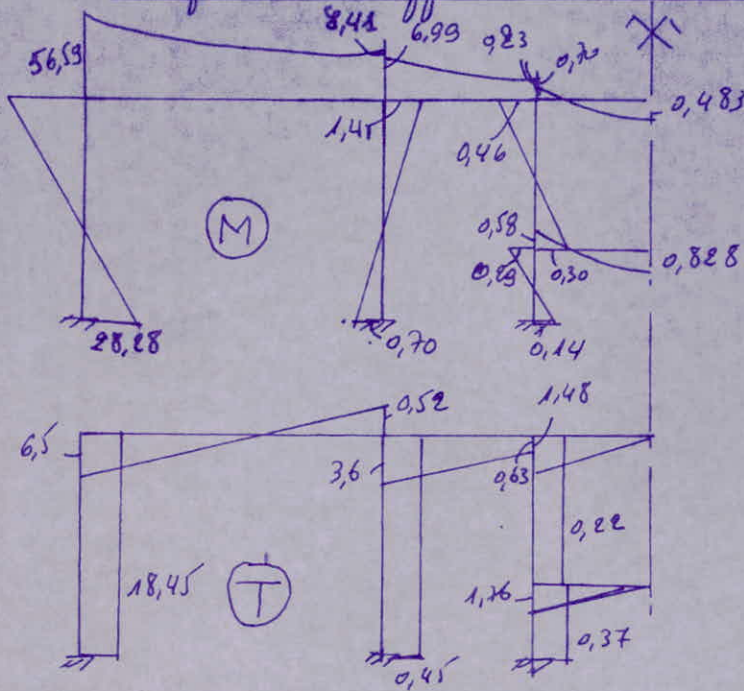 8,41
6,99
0,23
0,70
56,59
0,483
1,45
0,46
M
0,58
0,828
0,29
0,30
28,28
0,70
0,14
0,52
1,48
6,5
3,6
0,63
0,22
18,45
T
1,76
0,37
0,45